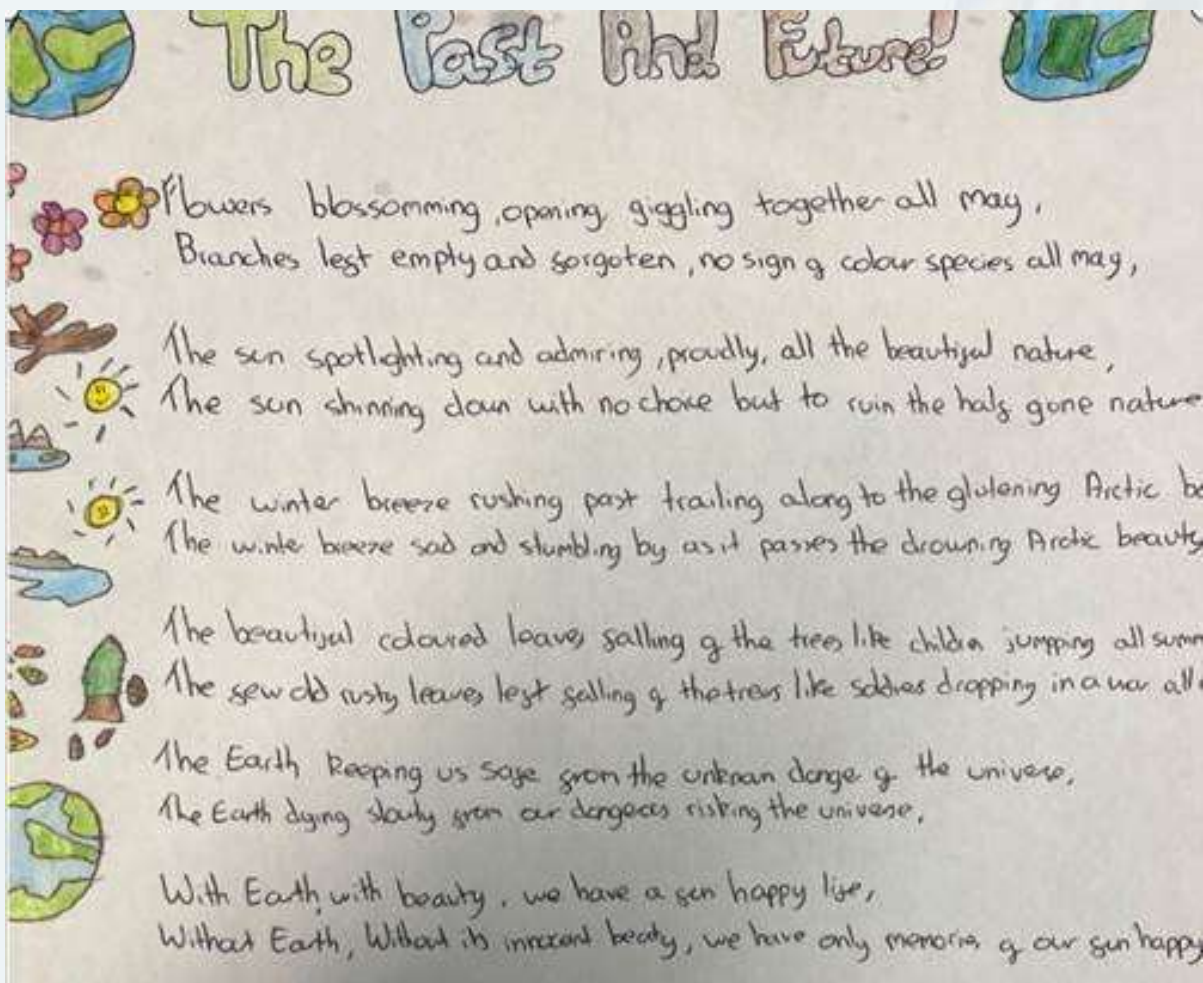 The Past And Future!
Flowers blossomming, opening, giggling together all may,
Branches left empty and forgoten, no sign of colour species all may,
The sun spotlighting and admiring, proudly, all the beautiful nature,
The sun shinning down with no choice but to ruin the half gone nature
The winter breeze rushing past trailing along to the Arctic
The winte breeze sad and stumbling by as it passes the drowning Arctic beauty
The beautiful coloured leaves falling of the trees like children jumping all
The few old rusty leaves left falling of the trees like dropping in a war all
The Earth keeping us safe from the of the universe,
The Earth dying slowly from our risking the universe,
With Earth, with beauty, we have a fun happy life,
Without Earth, Without its beauty, we have only of our fun happy